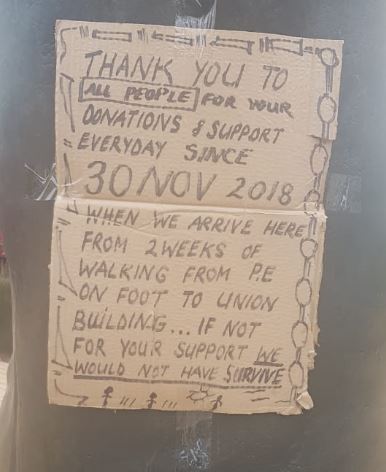 THANK YOU TO
ALL PEOPLE FOR YOUR
DONATIONS & SUPPORT
EVERYDAY SINCE
30 NOV 2018
WHEN WE ARRIVE HERE
FROM 2 WEEKS OF
WALKING FROM P.E
ON FOOT TO UNION
BUILDING... IF NOT
FOR YOUR SUPPORT WE
WOULD NOT HAVE SURVIVE